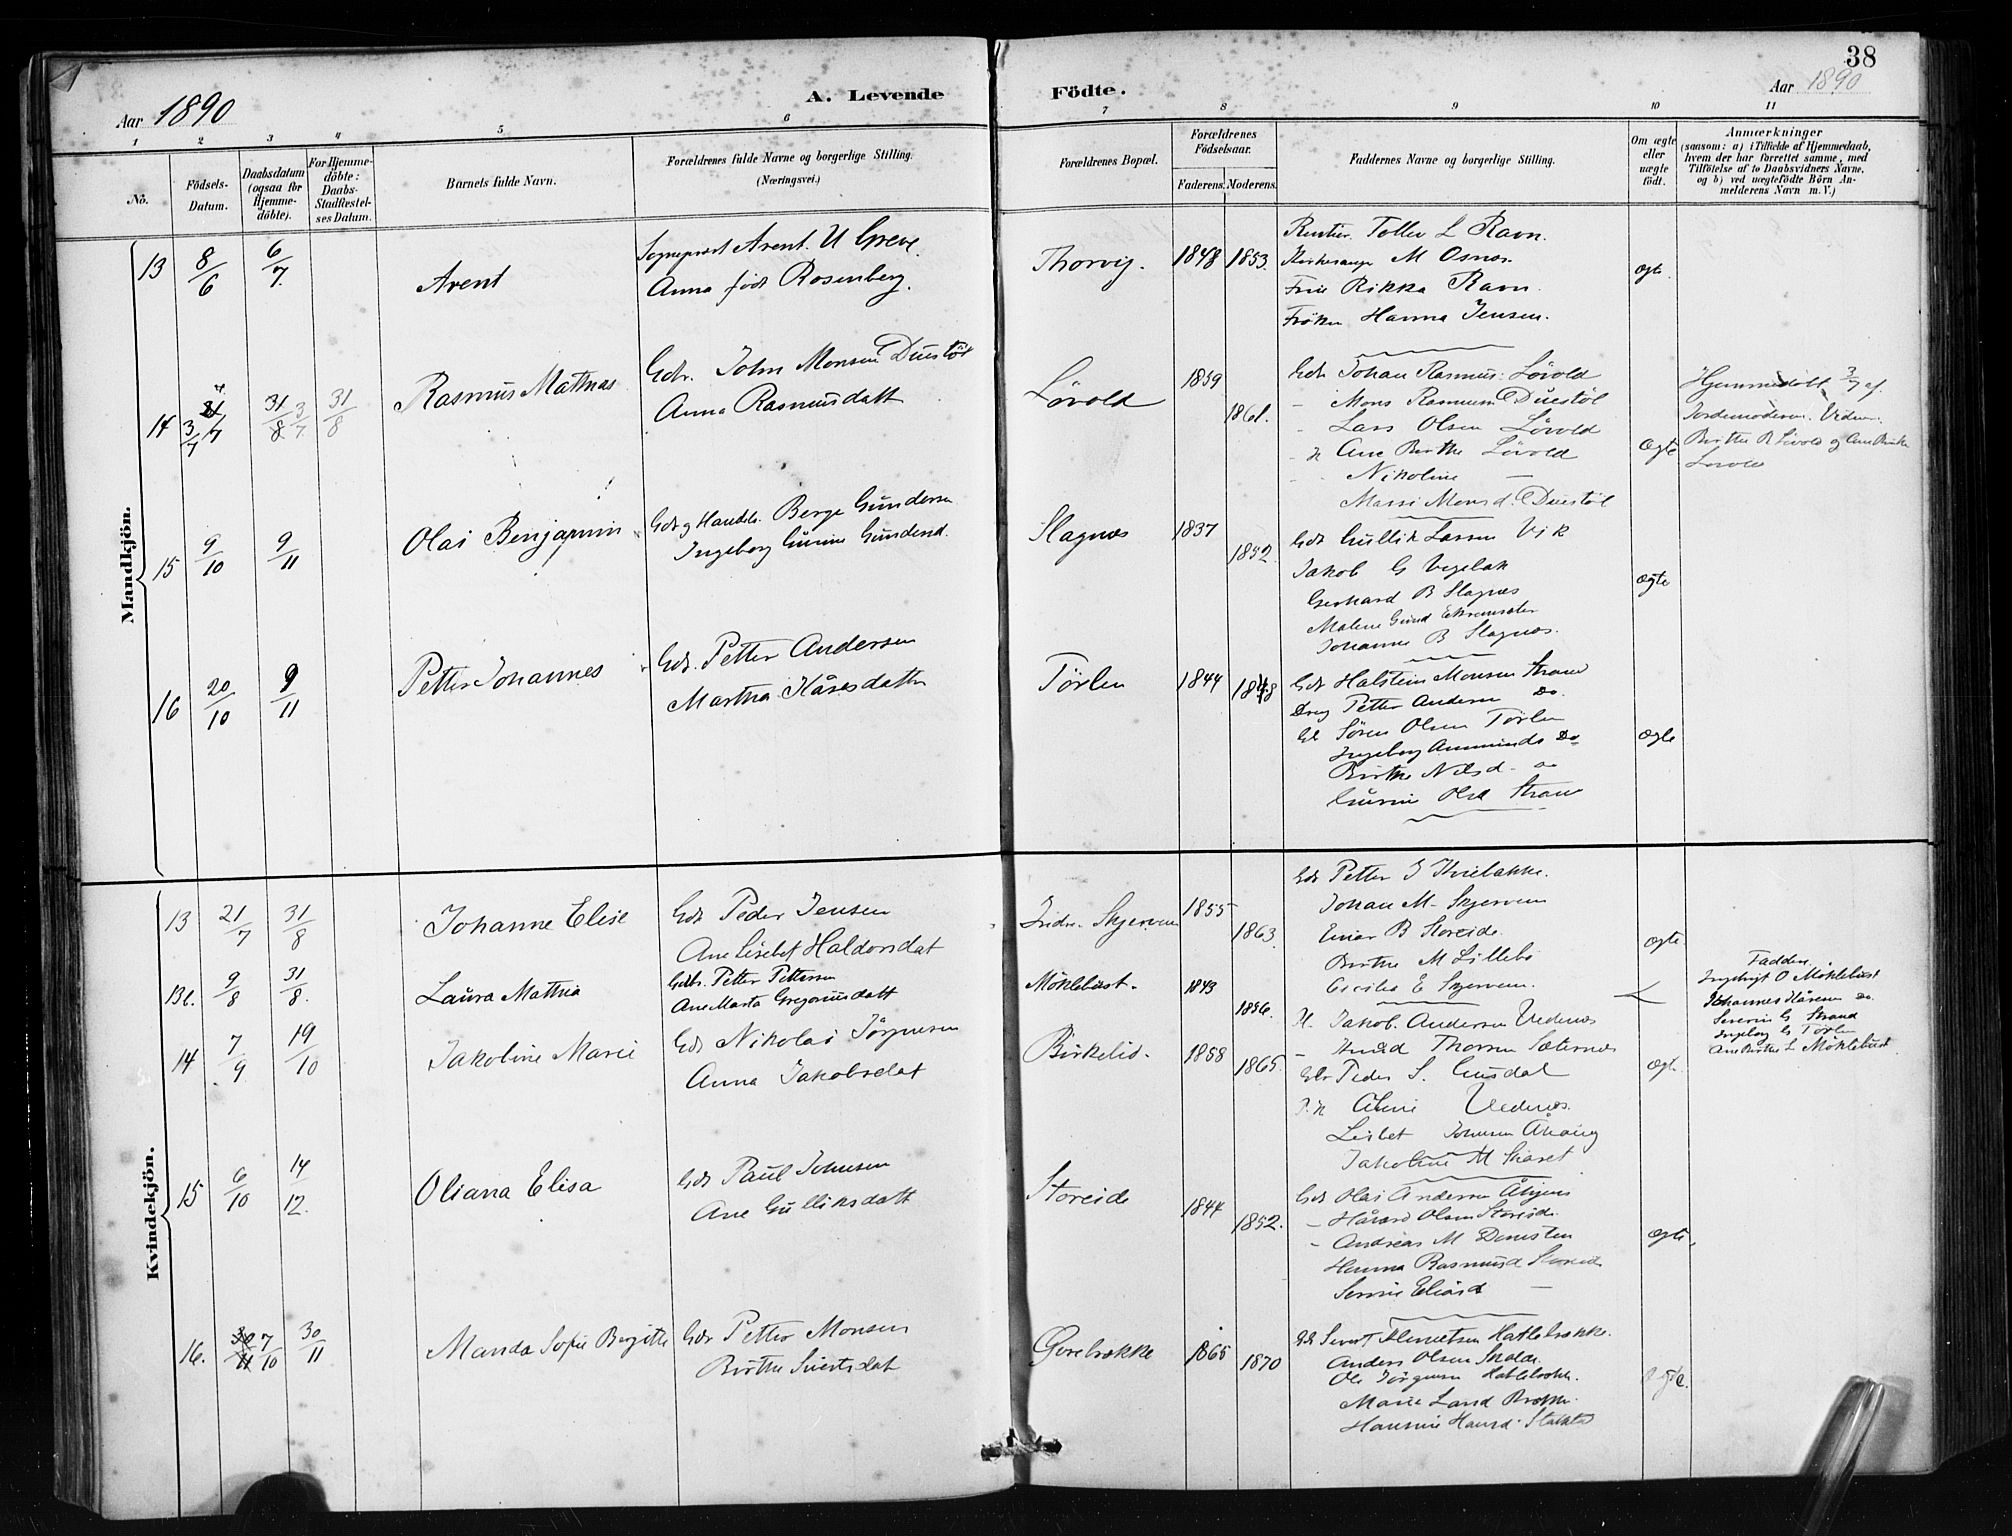 38
Aar 1890
A. Levende Födte.
Aar 1890
1 2 3 4 5 6 7 8 9 10 11
No.
Födsels-Datum.
Daabsdatum (ogsaa for Hjemmedöbte).
For Hjemmedöbte: Daabs-Stadfæstelses Datum.
Barnets fulde Navn.
Forældrenes fulde Navne og borgerlige Stilling.
(Næringsvei.)
Forældrenes Bopæl.
Forældrenes Födselsaar.
Faderens. Moderens.
Faddernes Navne og borgerlige Stilling.
Om ægte eller uægte födt.
Anmærkninger
(saasom: a) i Tilfælde af Hjemmedaab, hvem der har forrettet samme, med Tilföielse af to Daabsvidners Navne, og b) ved uægtefödte Börn Anmelderens Navn m. V.)
Mandkjön.
13 8/6 6/7 Arent
Sogneprest Arent U Greve
Anna født Rosenberg.
Thorvig. 1848 1853.
Rentier Toller L Ravn.
Kirkesanger M Osnes
Frue Rikka Ravn.
Frøken Hanna Jensen.
ægte.
14 3/7 31/8 3/7 31/8 Rasmus Mathias
Gdr. John Monsen Duestöl
Anna Rasmusdatt
Lövold 1859 1861.
Gdr Johan Rasmus: Lövold
- Mons Rasmusen Duestöl
- Lars Olsen Lövold
- K Ane Birthe Lövold
- - Nikoline —
Massi Monsd. Duestöl
ægte
Hjemmedöbt 3/7 af
Jordemoderen. Vidner
Birthe R Lövold og Ane Birthe
Lövold
15 9/10 9/11 Olai Benjamin
Gdr og Handels. Berge Gundersen
Ingeborg Gurine Gundersd.
Slagnes 1837 1852.
Gdr Gullik Larsen Vik
Jakob G Vegelak
Gerhard B Slagnes
Malene Gund Ekremsæter
Johanne B Slagnes.
ægte
16 20/10 9/11 Petter Johannes
Gdr. Petter Andersen
Martha Kåresdatter
Törlen 1844 1848
Gdr Halstein Monsen Strand
Dreng Petter Andersen Do.
Gdr Sören Olsen Törlen
Ingeborg Ammunds Do
Birthe Nilsd. Do
Gurine Olsd Strand
ægte
Kvindekjön.
13 21/7 31/8 Johanne Elise
Gdr Peder Jensen
Ane Lisebet Haldorsdat
Indre Skjerven 1855 1863
Gdr Petter J Kvielakke.
Johan M. Skjerven
Einar B Storeide
Birthe M Lillebö
Cecilia E Skjerven.
ægte
13b. 9/8 31/8. Laura Mathia
Gdr. Petter Pettersen
Ane Marta Gregoriusdatt
Möklebust. 1843 1856.
Faddere
Ingebrigt O Möklebust
Johannes Kåresen Do.
Severin G Strand
Ingeborg G Törlen
Ane Birthe L Möklebust
14 7/9 19/10 Jakoline Marie
Gdr Nikolai Jörgensen
Anna Jakobsdat
Birkelid. 1858 1865.
K. Jakob Andersen Vedenes
- Knud Thorsen Sæternes
Gdr Peder S. Gusdal
P.K Oline Vedenes.
Lisbet Johnsen Åhaug
Jakoline M Skaret
ægte.
15 6/10 14/12. Oliana Elisa
Gdr Paul Johnsen
Ane Gulliksdatt
Storeide 1844 1852.
Gdr Olai Andersen Åhjem
- Hårard Olsen Storeide
- Andreas M Demsten
Hanna Rasmusd Storeide
Serine Eliasd —
ægte.
16. 30/11 7/10 30/11 Manda Sofie Bergitte
Gdr Petter Monsen
Birthe Sivertsdat
Gerebrække 1865 1870
Gdr Sivert Hatlebrække.
Anders Olsen Skaldr.
Ole Jörgensen Hatlebrekke.
Marie Larsd Brække
Hansine Hansd.
ægte.